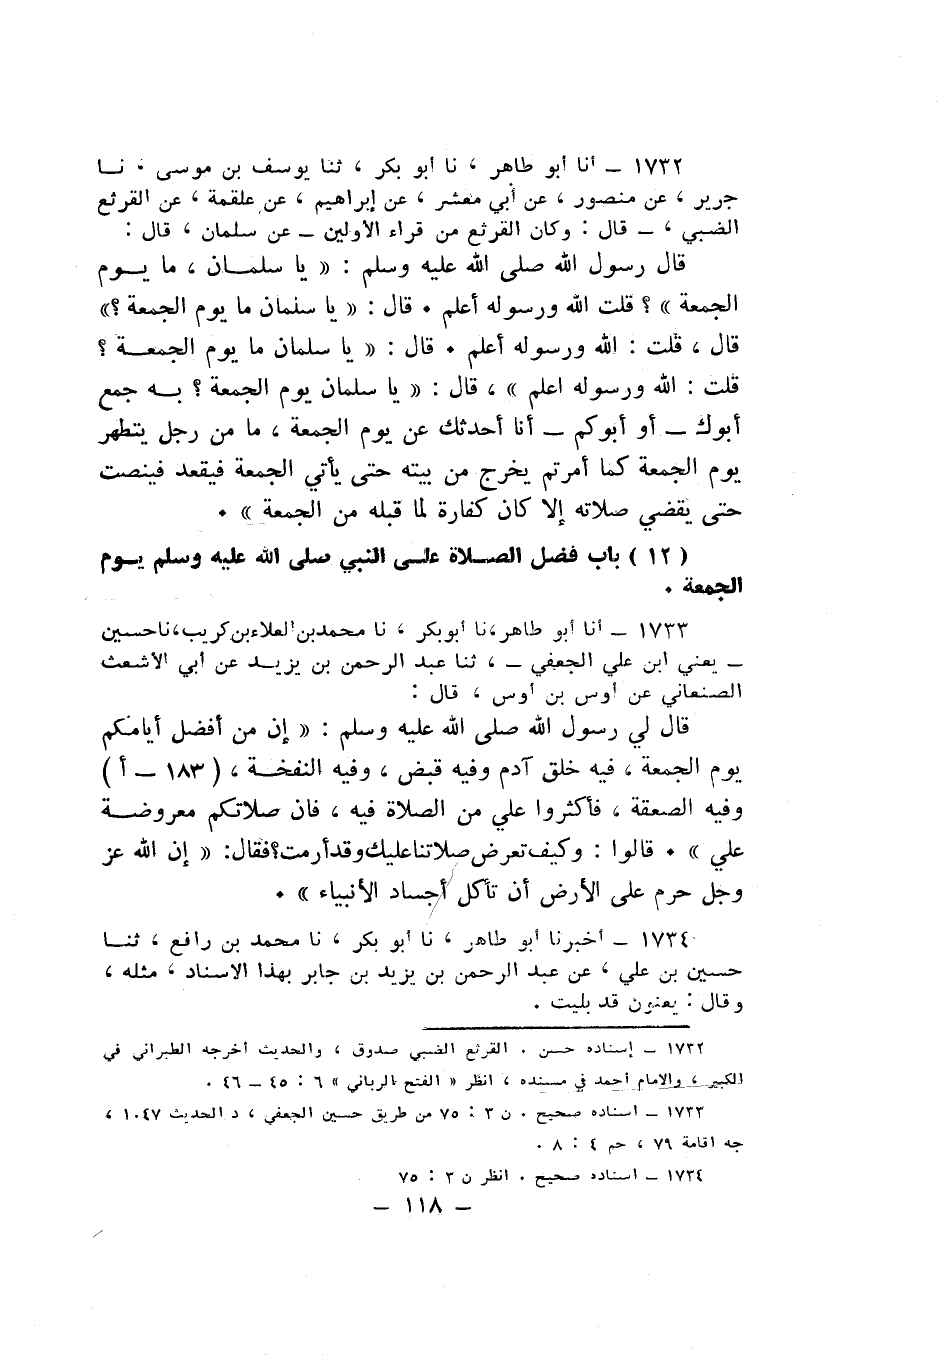 ١٧٣٢ ــ أنا أبو طاهر ، نا أبو بكر ، ثنا يوسف بن موسى ، نــا
جرير ، عن منصور ، عن أبي معشر ، عن إبراهيم ، عن علقمة ، عن القرثع
الضبي ، ــ قال : وكان القرثع من قراء الأولين ــ عن سلمان ، قال :
قال رسول الله صلى الله عليه وسلم : « يا سلمــان ، ما يــوم
الجمعة » ؟ قلت الله ورسوله أعلم . قال : « يا سلمان ما يوم الجمعة ؟»
قال ، قلت : الله ورسوله أعلم . قال : « يا سلمان ما يوم الجمعــة ؟
قلت : الله ورسوله اعلم » ، قال : « يا سلمان يوم الجمعة ؟ بــه جمع
أبوك ــ أو أبوكم ــ أنا أحدثك عن يوم الجمعة ، ما من رجل يتطهر
يوم الجمعة كما أمرتم يخرج من بيته حتى يأتي الجمعة فيقعد فينصت
حتى يقضي صلاته إلا كان كفارة لما قبله من الجمعة » .
( ١٢ ) باب فضل الصــلاة علــى النبي صلى الله عليه وسلم يــوم
الجمعة .
١٧٣٣ ــ أنا أبو طاهر،نا أبوبكر ، نا محمدبن العلاءبن كريب،ناحسين
ــ يعني ابن علي الجعفي ــ ، ثنا عبد الرحمن بن يزيــد عن أبي الأشعث
الصنعاني عن أوس بن أوس ، قال :
قال لي رسول الله صلى الله عليه وسلم : « إن من أفضل أيامكم
يوم الجمعة ، فيه خلق آدم وفيه قبض ، وفيه النفخــة ، ( ١٨٣ ــ أ )
وفيه الصعقة ، فأكثروا علي من الصلاة فيه ، فان صلاتكم معروضــة
علي » . قالوا : وكيف تعرض صلاتنا عليك وقد أرمت؟فقال: « إن الله عز
وجل حرم على الأرض أن تأكل أجساد الأنبياء » .
١٧٣٤ ــ أخبرنا أبو طاهر ، نا أبو بكر ، نا محمد بن رافع ، ثنــا
حسين بن علي ، عن عبد الرحمن بن يزيد بن جابر بهذا الاسناد ، مثله ،
وقال : يعنون قد بليت .
١٧٣٢ ــ إسناده حسن . القرثع الضبي صدوق ، والحديث أخرجه الطبراني في
الكبير ، والامام أحمد في مسنده ، انظر « الفتح الرباني » ٦ : ٤٥ ــ ٤٦ .
١٧٣٣ ــ اسناده صحيح . ن ٣ : ٧٥ من طريق حسين الجعفي ، د الحديث ١٠٤٧ ،
جه اقامة ٧٩ ، حم ٤ : ٨ .
١٧٣٤ ــ اسناده صحيح . انظر ن ٣ : ٧٥
ــ ١١٨ ــ